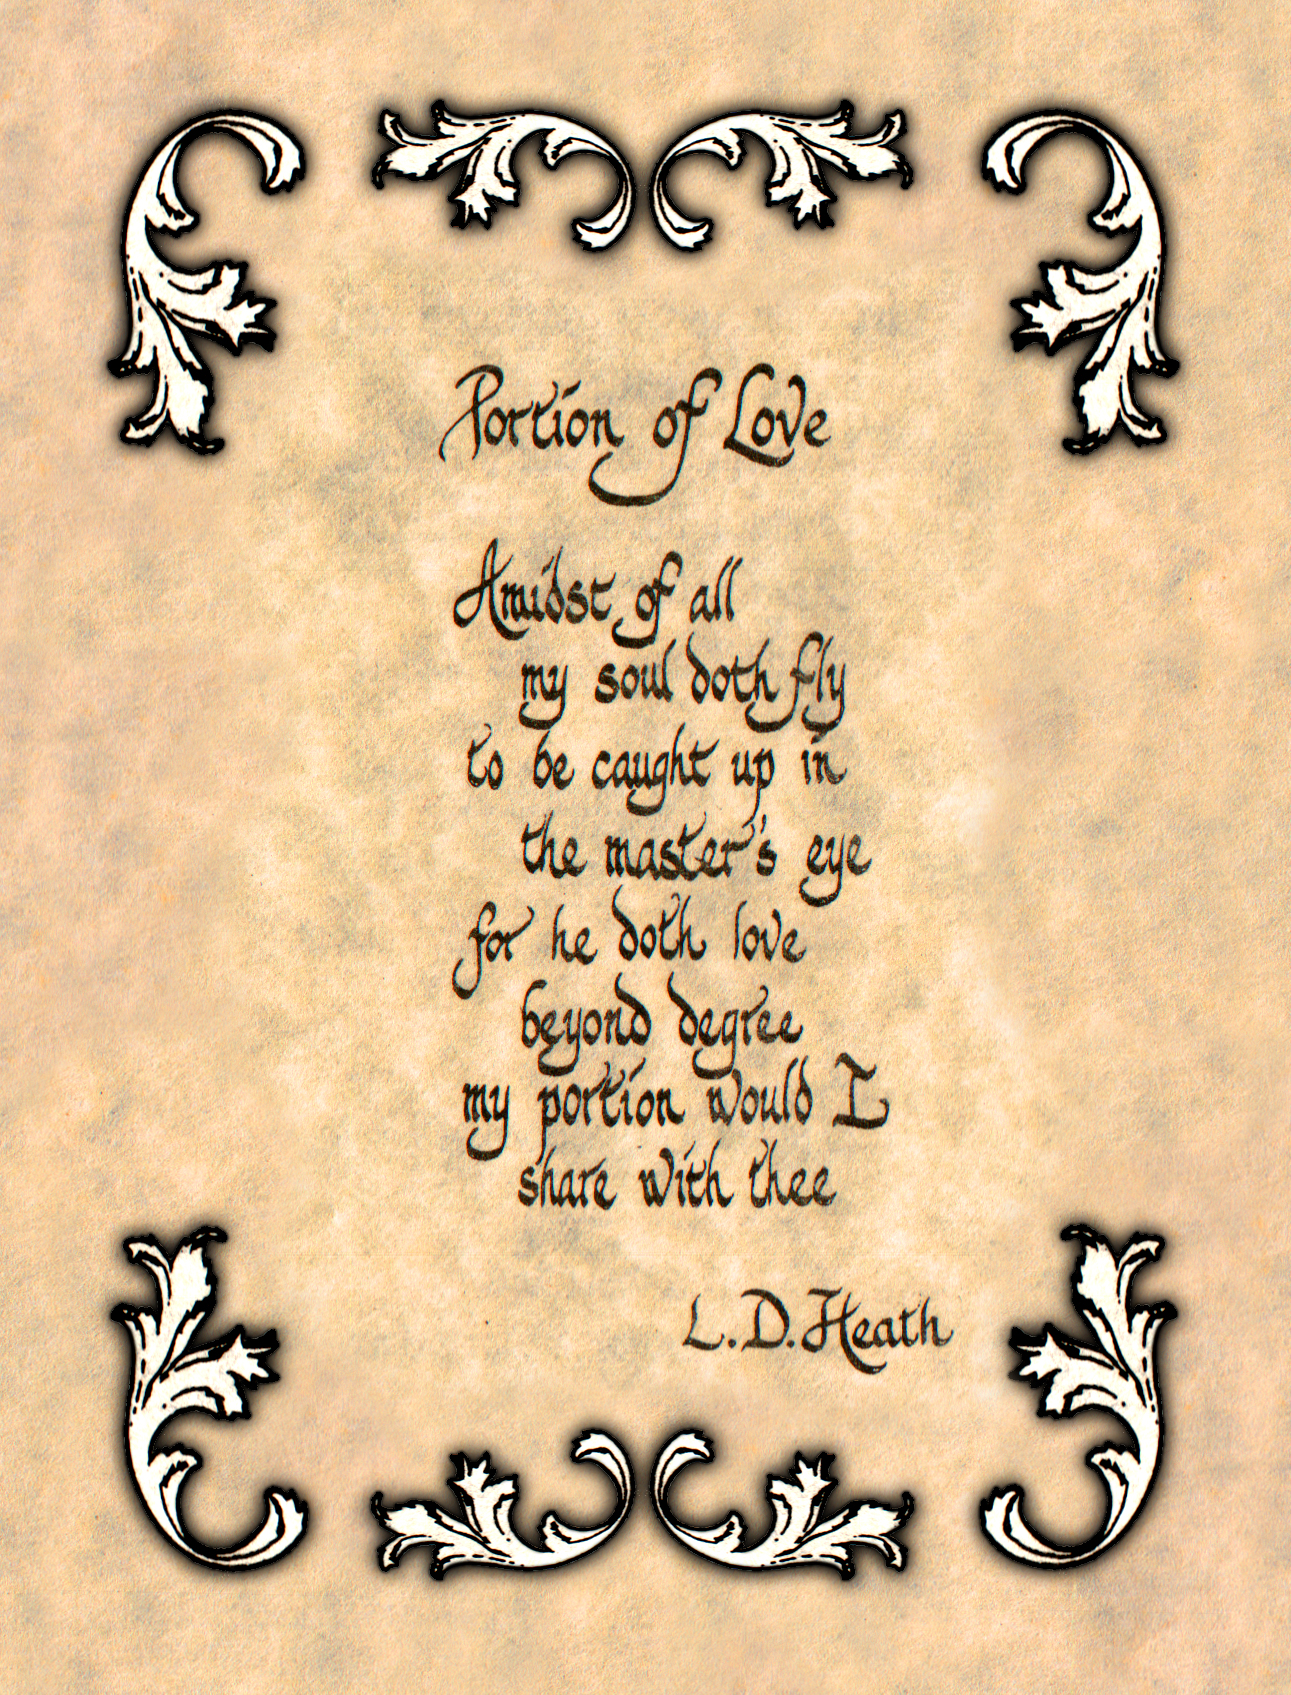 Portion of Love
Amidst of all
my soul doth fly
to be caught up in
the master's eye
for he doth love
beyond degree
my portion would I
share with thee
L.D. Heath